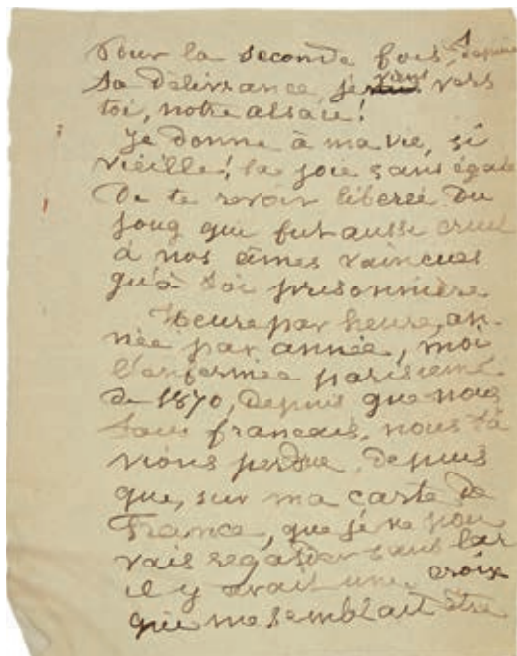 Pour la seconde fois, depuis
sa délivrance, je viens vers
toi, notre alsace!
Je donne à ma vie, si
vieille! la joie sans égale
De te revoir libérée du
joug qui fut aussi cruel
à nos âmes vaincues
qu'à toi prisonnière
Heure par heure, an-
née par année, moi
l'enfermée parisienne
de 1870, depuis que nous
tous français, nous t'a
vions perdue, depuis
que, sur ma carte de
France, que je ne pou
vais regarder sans lar
il y avait une croix
qui me semblait être